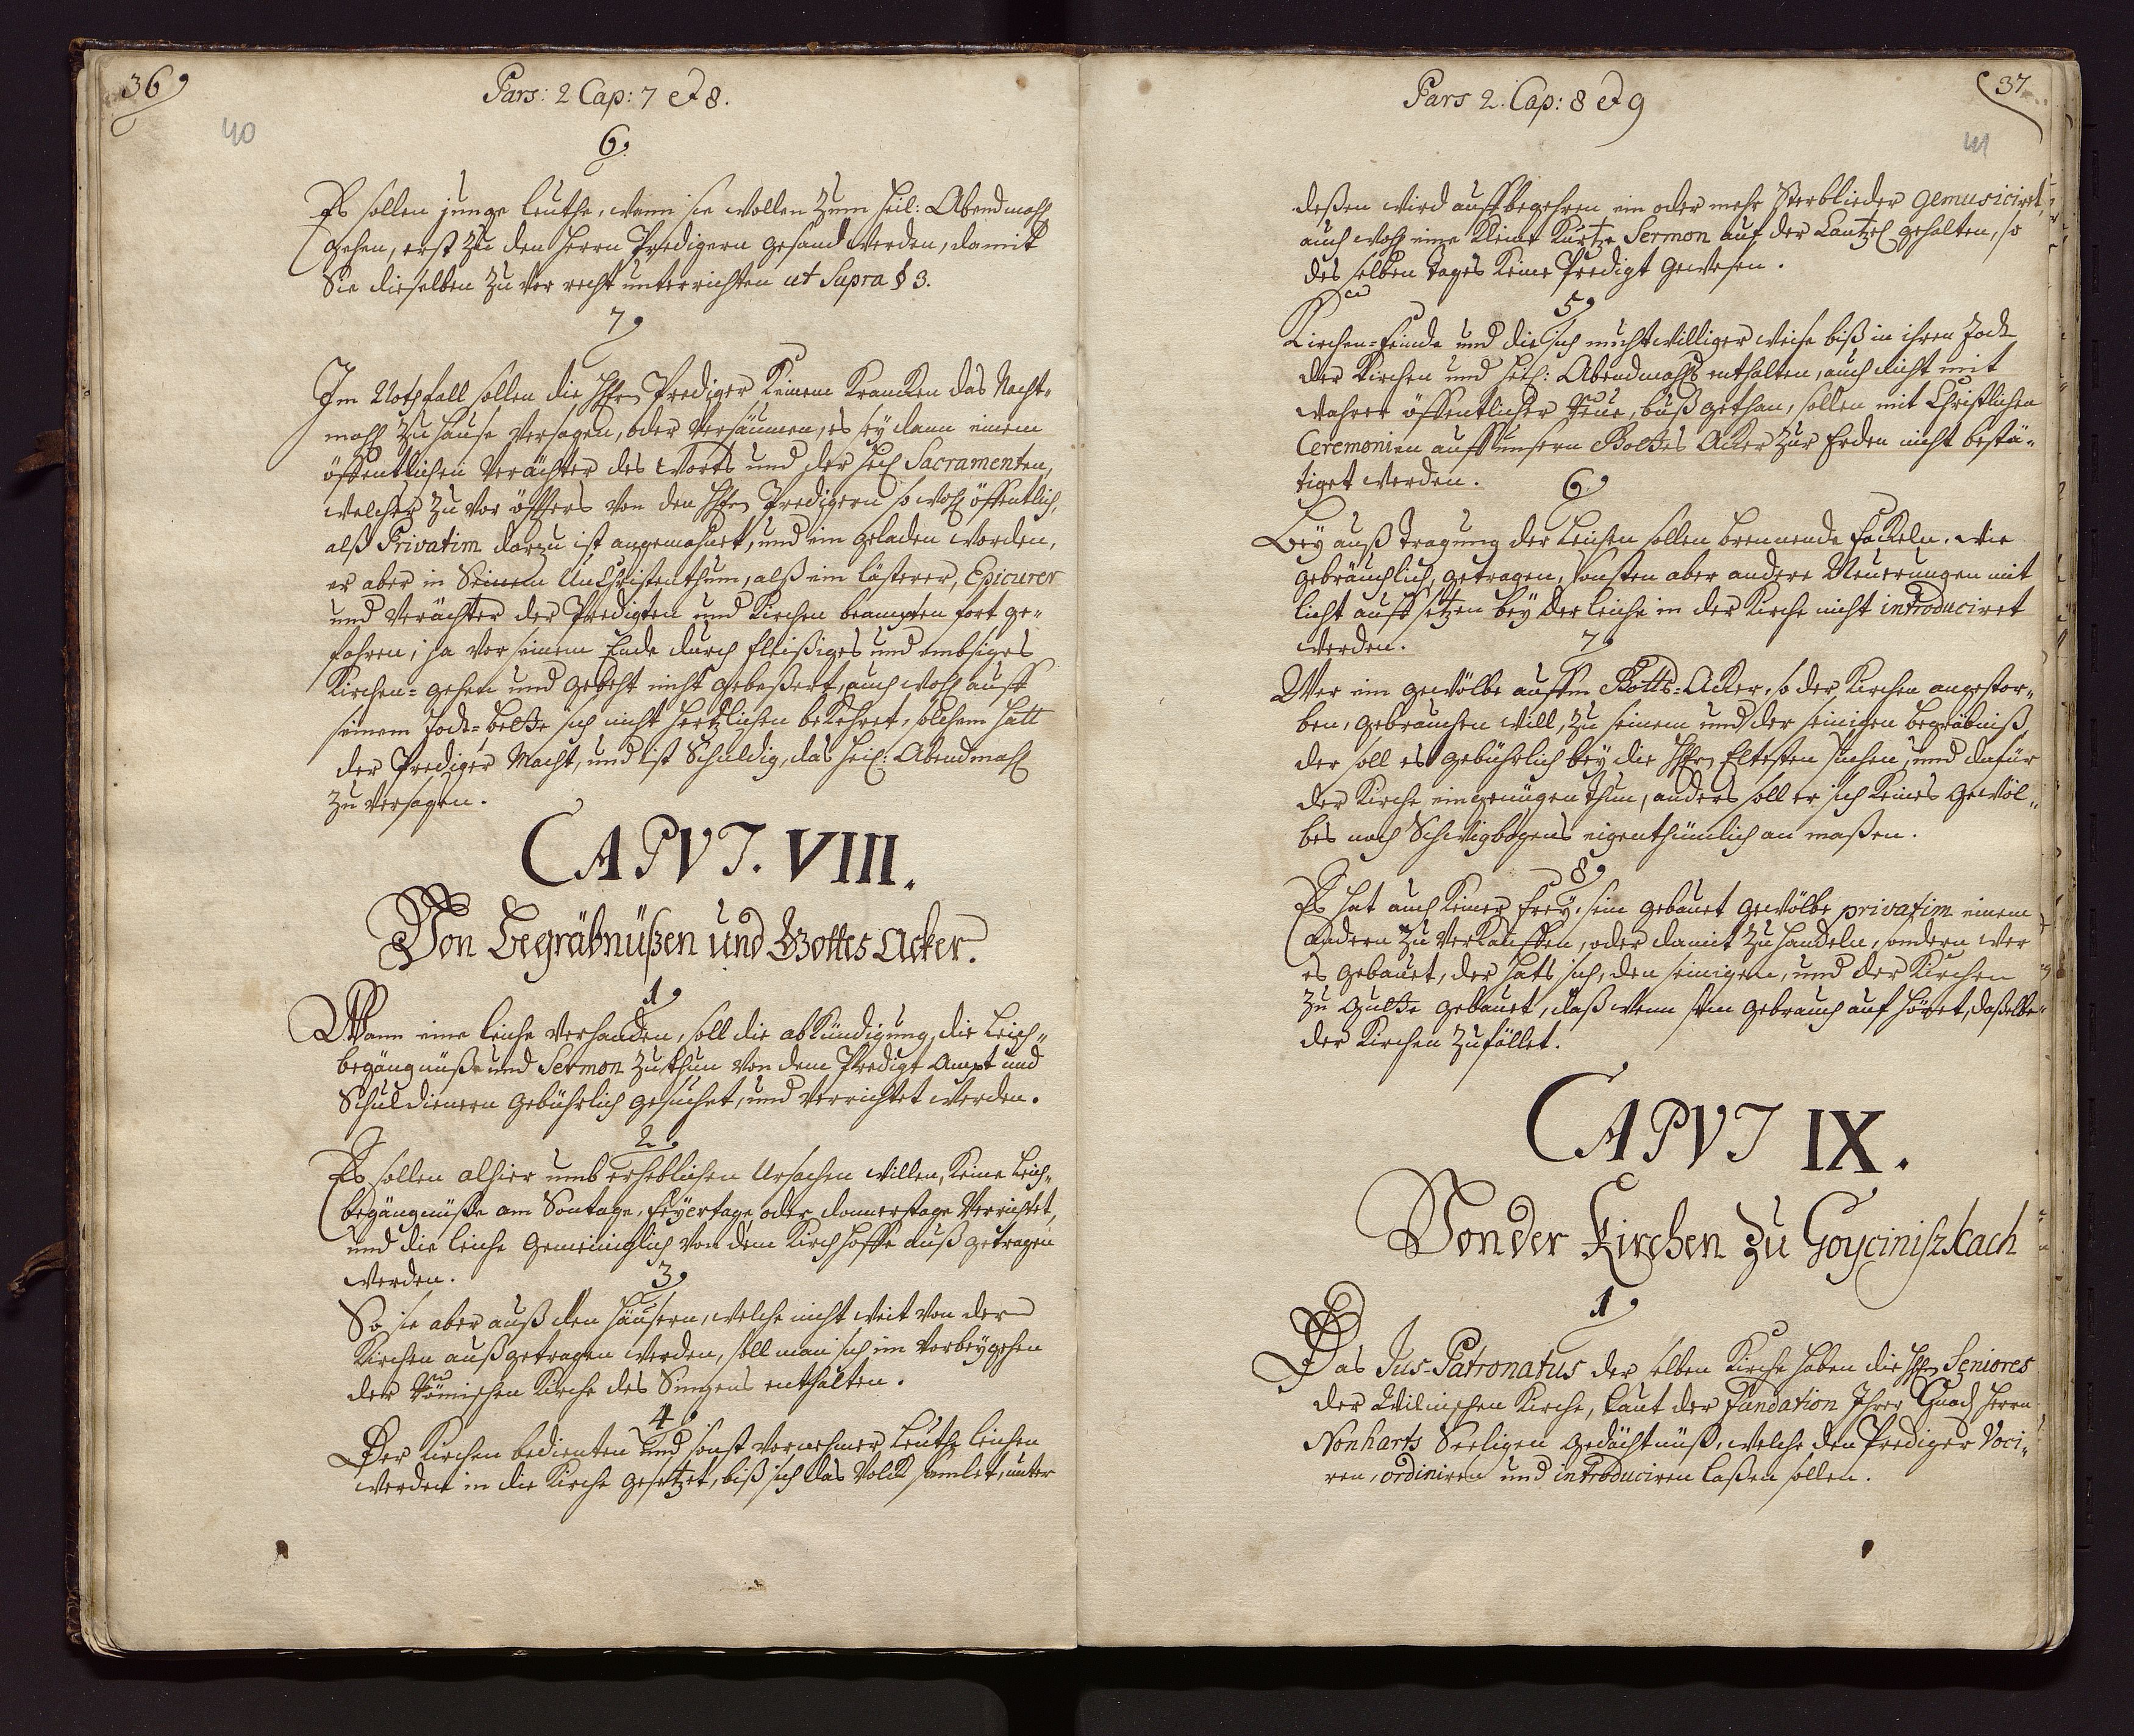 36
Pars: 2 Cap: 7 et 8.
40
6.
Es sollen junge Leuthe, wenn sie wollen zum Heil: Abendmahl
gehen, erst zu den Herrn Predigern gesand werden, damit
Sie dieselben zu vor recht unterrichten ut Supra § 3.
7
Im Nothfall sollen die HHrn Prediger keinem Krancken das Nacht-
mahl zu Hause versagen, oder versäumen, es sey dann einem
öffentlichen Verächter des Worts und der Heil Sacramenten,
welcher zu vor öffters von den HHrn Predigern so wohl öffentlich,
alß Privatim darzu ist angemahnet, und ein geladen worden,
er aber in Seinem UnChristenthum, alß ein Lästerer, Epicurer
und Verächter der Predigten und Kirchen beampten fort ge-
fahren, ja vor seinem Ende durch fleißiges und embsiges
Kirchen-gehen und Gebeht nicht gebeßert, auch wohl auff
seinem Todt-bette sich nicht hertzlichen bekehret, solchem hatt
der Prediger Macht, und ist Schuldig, das Heil: Abendmahl
zu versagen.
CAPVT. VIII.
Von Begräbnüßen und Gottes Acker.
1
Wann eine Leiche verhanden, soll die abkündigung, die Leich-
begängnüße und Sermon zu thun von dem Predigt Ampt und
Schuldienern gebührlich gesuchet, und verrichtet werden.
2
Es sollen alhier umb erheblichen Ursachen willen, keine Leich-
begängnüße am Sontage, Feyertage oder donnerstage verrichtet,
und die Leiche gemeiniglich von dem Kirchhoffe auß getragen
werden.
3
So sie aber auß den Häusern, welche nicht weit von der
Kirchen außgetragen werden, soll man sich im vorbeygehen
der Römischen Kirche des Singens enthalten.
4
Der Kirchen bedienten und sonst vornehmer Leuthe Leichen
werden in die Kirche gesetzet, biß sich das Volck samlet, unter
37
Pars 2. Cap: 8 et 9
41
deßen wird auff begehren ein oder mehr Sterblieder gemusiciret,
auch wohl eine kleine kurtze Sermon auf der Cantzel gehalten, so
des selben tages keine Predigt gewesen.
5
Kirchen-feinde und die sich muhtwilliger weise biß in ihren Todt
der Kirchen und Heil: Abendmahls enthalten, auch nicht mit
wahrer öffentlicher Reue, buß gethan, sollen mit Christlichen
Ceremonien auff unsern Gottes Acker zur Erden nicht bestä-
tiget werden.
6
Bey auß tragung der Leichen sollen brennende Fackeln, wie
gebräuchlich, getragen, sonsten aber andere Neuerungen mit
licht auff setzen bey der Leiche in der Kirche nicht introduciret
werden.
7
Wer ein gewölbe auffm Gotts-Acker, so der Kirchen angestor-
ben, gebrauchen will, zu seinem und der seinigen begräbniß,
der soll es gebührlich bey die HHrn Eltesten suchen, und dafür
der Kirche ein genügen thun, anders soll er sich keines Gewöl-
bes noch Schwigbogens eigenthümlich an maßen.
8
Es hat auch keiner frey, sein gebauet gewölbe privatim einem
andern zu verkauffen, oder damit zu handeln, sondern wer
es gebauet, der hats sich, den seinigen, und der Kirchen
zu gutte gebauet, daß wenn sein gebrauch auf höret, daßelbe
der Kirchen zufället.
CAPVT IX.
Von der Kirchen zu Goyciniszkach
1
Das Jus-Patronatus der selben Kirche haben die HHrn Seniores
der Wilnischen Kirche, laut der Fundation Ihrer Gnad Herrn
Nonharts Seeligen gedächtnüß, welche den Prediger Voci-
ren, ordiniren und introduciren laßen sollen.